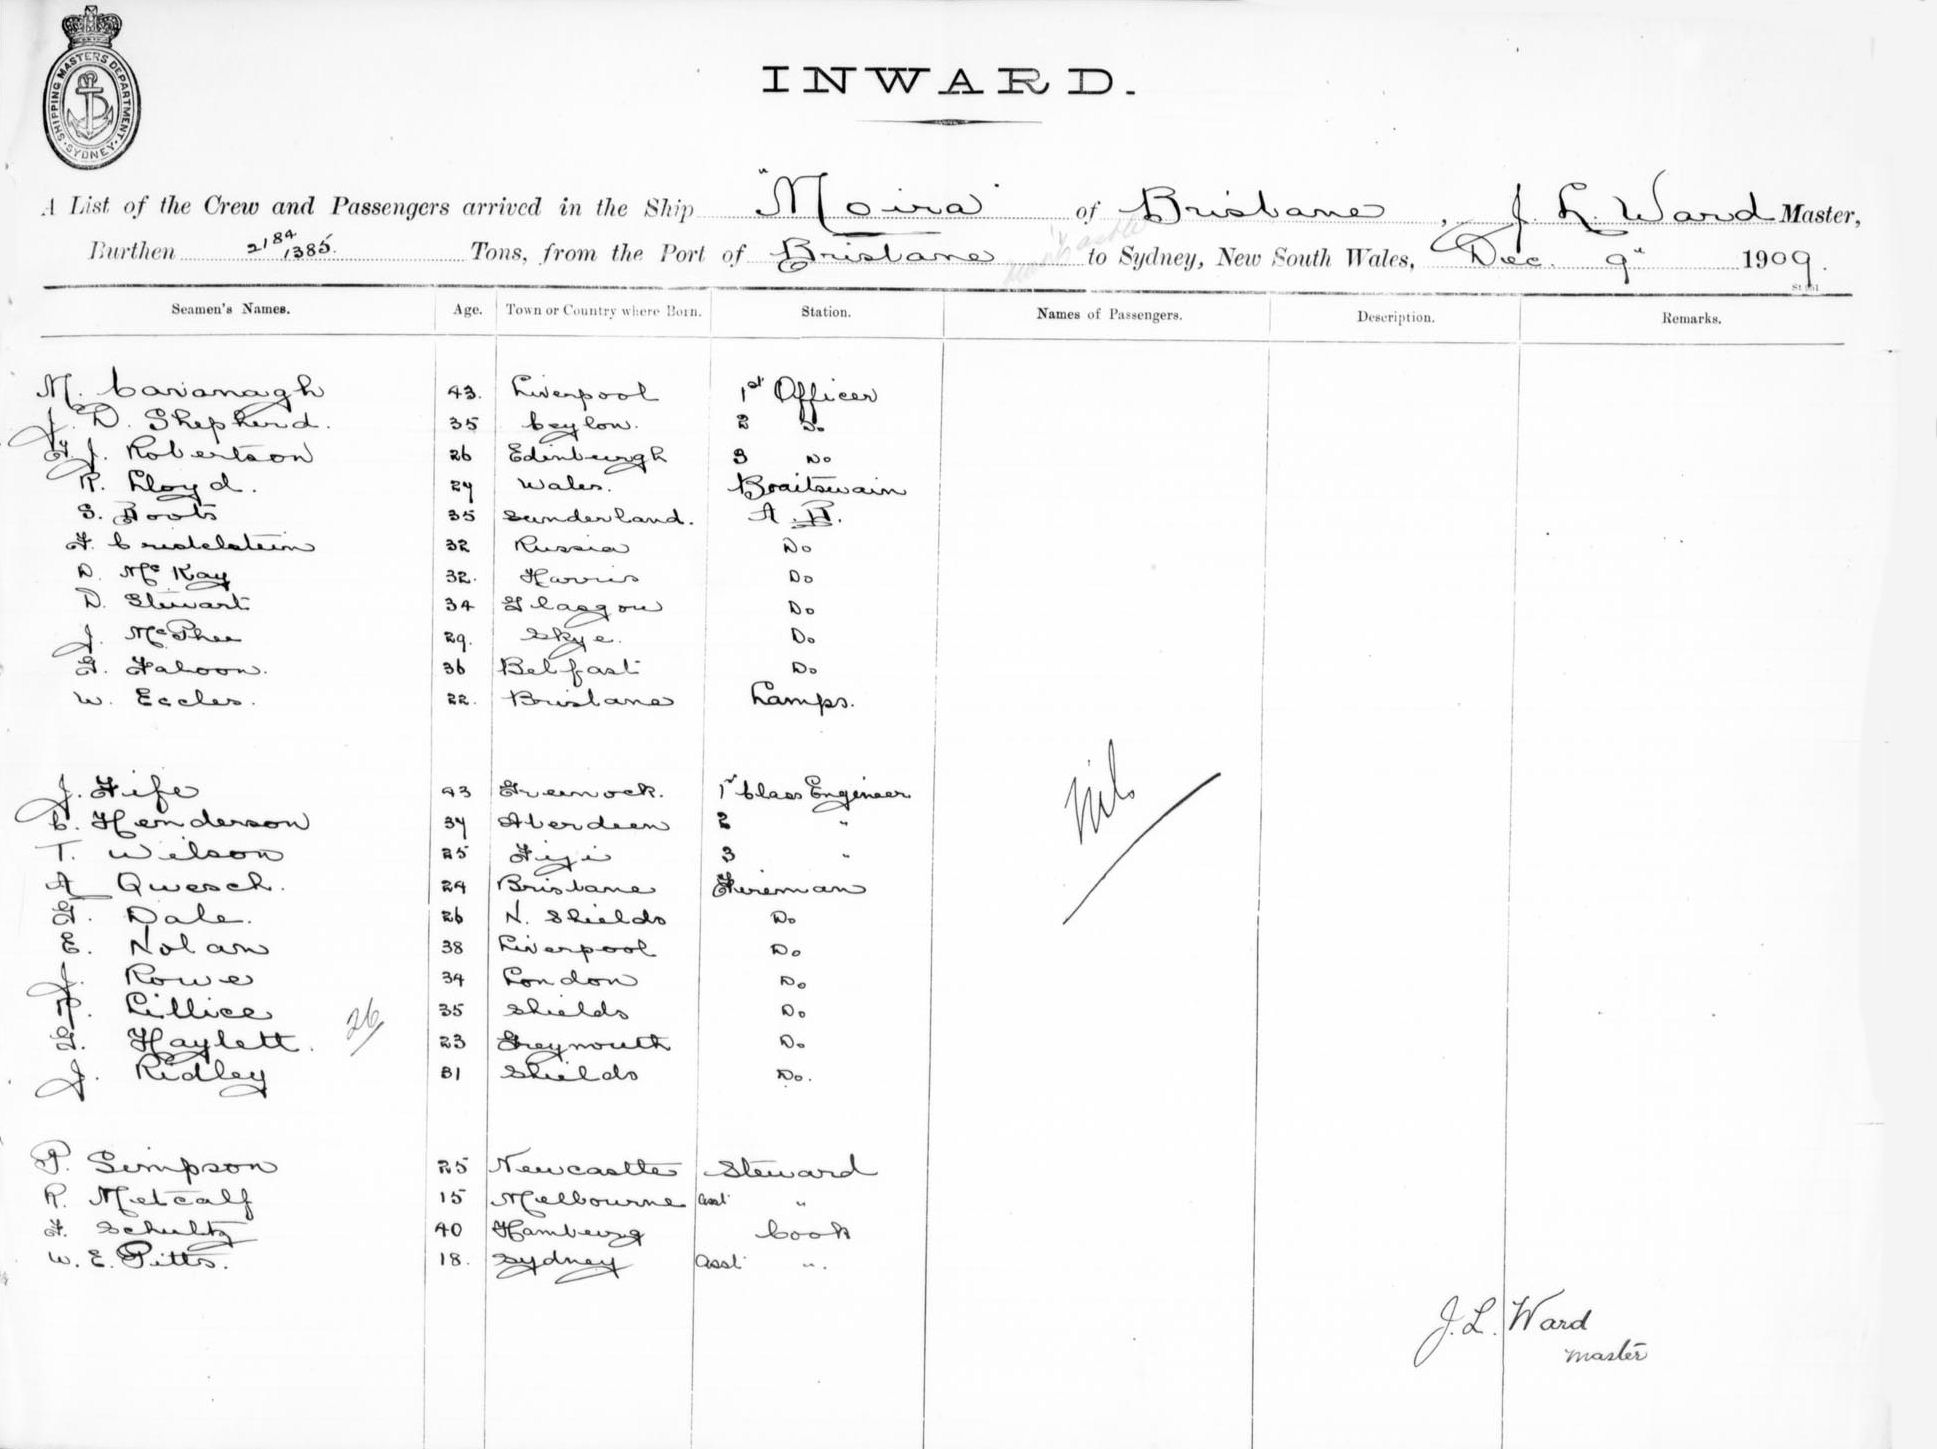 SHIPPING MASTERS DEPARTMENT · SYDNEY ·
INWARD.
A List of the Crew and Passengers arrived in the Ship "Moira" of Brisbane, J. L. Ward Master,
Burthen 2184 1385. Tons, from the Port of Brisbane to Sydney, New South Wales, Dec. 9" 1909.
Seamen's Names. Age. Town or Country where Born. Station. Names of Passengers. Description. Remarks.
M. Cavanagh 43. Liverpool 1st Officer
J. D. Shepherd. 35 Ceylon. 2 Do
J. Robertson 26 Edinburgh 3 Do
R. Lloyd. 27 Wales. Boaitswain
S. Boots 35 Sunderland. A.B.
F. 32 Russia Do
D. McKay 32. Harris Do
D. Stewart 34 Glasgow Do
J. McPhee 29. Skye. Do
G. Faloon. 36 Belfast Do
W. Eccles. 22. Brisbane Lamps.
J. Fife 43 Greenock. 1st Class Engineer
C. Henderson 37 Aberdeen 2 "
T. Wilson 25 Fiji 3 "
A Quesch. 24 Brisbane Fireman
G. Dale. 26 N. Shields Do
E. Nolan 38 Liverpool Do
J. Rowe 34 London Do
P. Lillice 35 Shields Do
G. Haylett. 23 Greymouth Do
J. Ridley 31 Shields Do.
26
Nil
P. Simpson 25 Newcastle Steward
R. Metcalf 15 Melbourne asst "
F. Schultz 40 Hamburg Cook
W. E. Pitts. 18. Sydney asst ".
J. L. Ward
Master